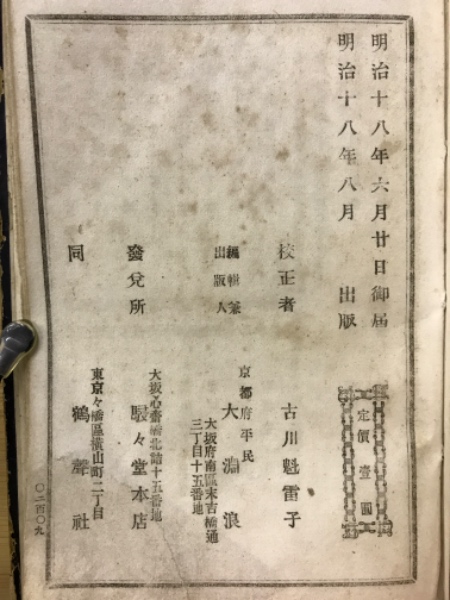 明治十八年六月廿日御届
明治十八年八月 出版
定價壹圓
校正者 古川魁雷子
編輯兼出版人
京都府平民
大淵浪
大坂府南區末吉橋通三丁目十五番地
發兌所
大坂心齋橋北詰十五番地
駸々堂本店
同
東京々橋區横山町二丁目
鶴聲社
〇二百〇九